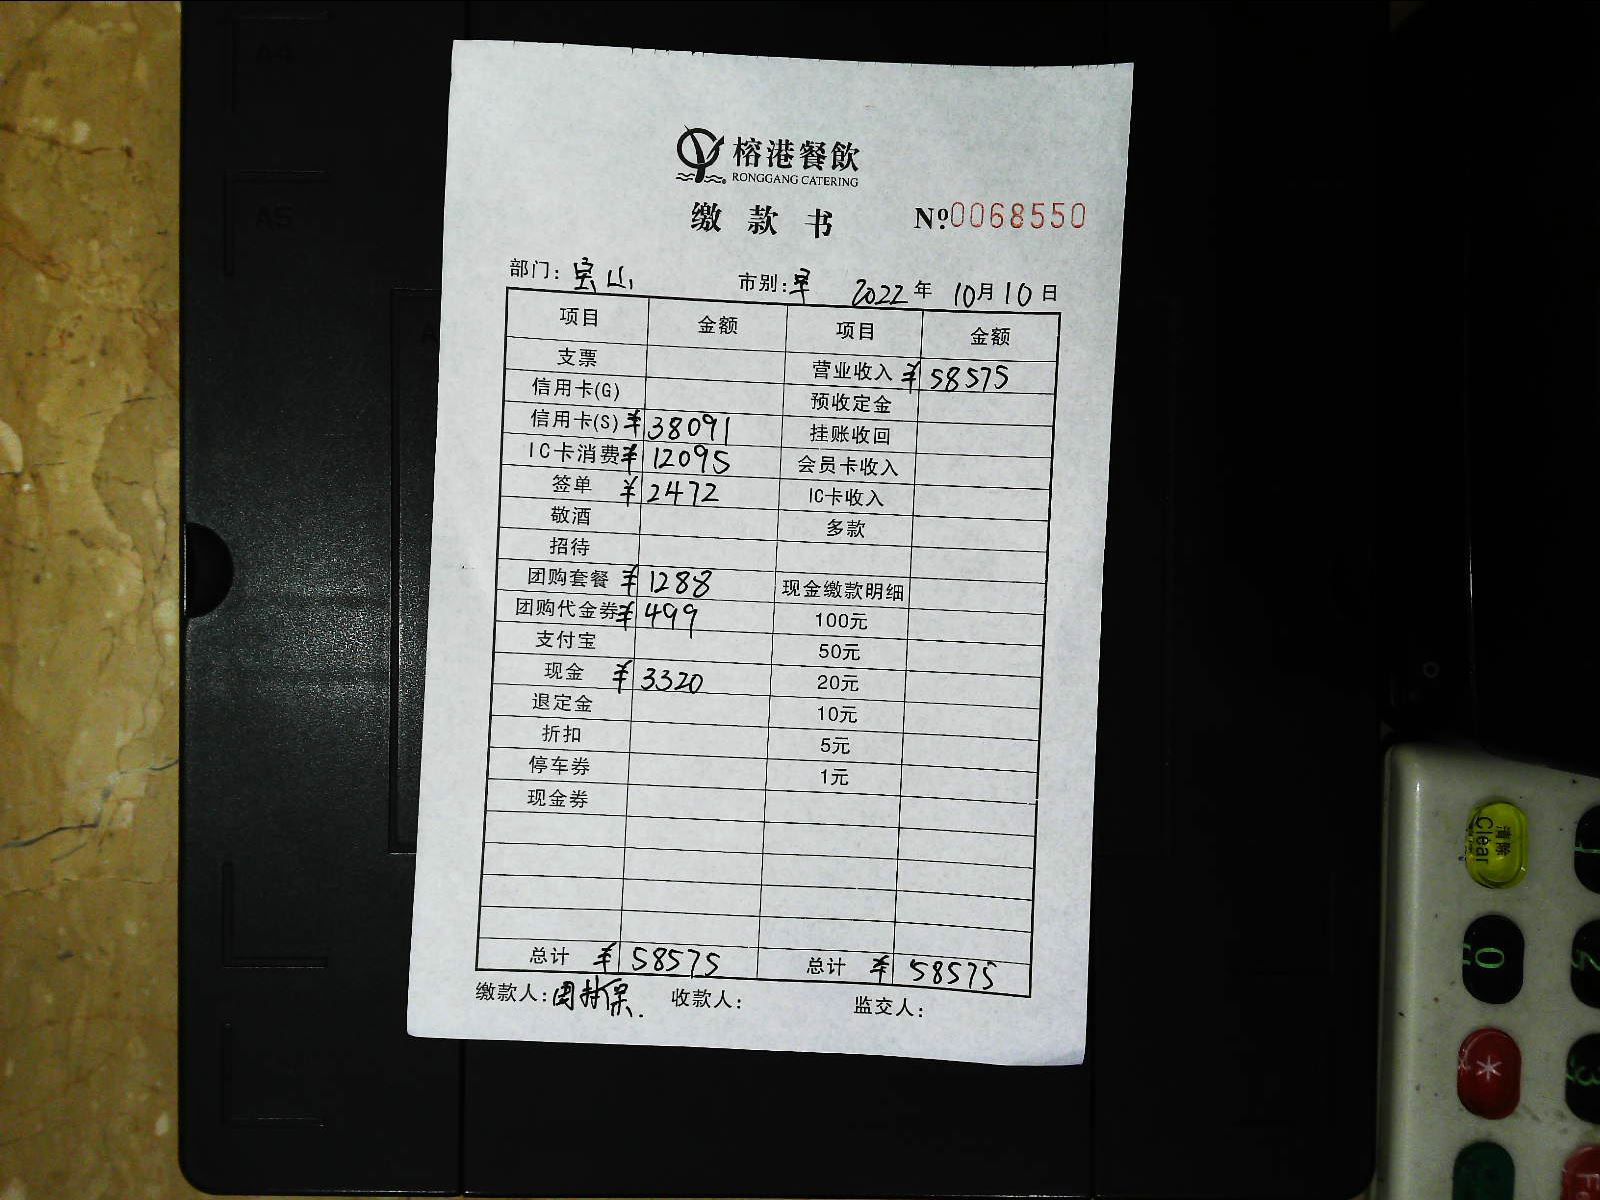 榕港餐飲
RONGGANG CATERING
缴款书 Nº:0068550
部门:宝山 市别:早 2022年10月10日
项目 金额 项目 金额
支票 营业收入 ¥58575
信用卡(G) 预收定金
信用卡(S) ¥38091 挂账收回
IC卡消费 ¥12095 会员卡收入
签单 ¥2472 IC卡收入
敬酒 多款
招待
团购套餐 ¥1288 现金缴款明细
团购代金券 ¥499 100元
支付宝 50元
现金 ¥3320 20元
退定金 10元
折扣 5元
停车券 1元
现金券
总计 ¥58575 总计 ¥58575
缴款人: 收款人: 监交人:
A4
A5
清除
Clear
0
*